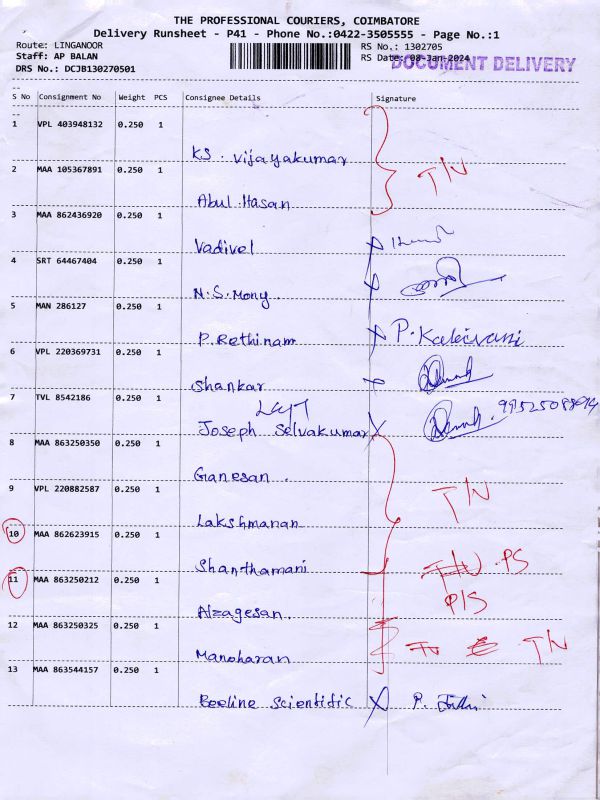 THE PROFESSIONAL COURIERS, COIMBATORE
Delivery Runsheet - P41 - Phone No.:0422-3505555 - Page No.:1
Route: LINGANOOR RS No.: 1302705
Staff: AP BALAN RS Date: 08-Jan-2024
DOCUMENT DELIVERY
DRS No.: DCJB130270501
S No Consignment No Weight PCS Consignee Details Signature
1 VPL 403948132 0.250 1
KS. Vijayakumar
T/N
2 MAA 105367891 0.250 1
Abul Hasan
3 MAA 862436920 0.250 1
Vadivel X
4 SRT 64467404 0.250 1
N.S. Mony X
5 MAN 286127 0.250 1
P. Rethinam X P. Kaleivani
6 VPL 220369731 0.250 1
Shankar X
7 TVL 8542186 0.250 1
Joseph Selvakumar X
8 MAA 863250350 0.250 1
Ganesan.
9 VPL 220882587 0.250 1
T/N
Lakshmanan
10 MAA 862623915 0.250 1
Shanthamani P/S
11 MAA 863250212 0.250 1
P/S
Alzagesan.
12 MAA 863250325 0.250 1
Manoharan T/N
13 MAA 863544157 0.250 1
Beeline Scientific X P.